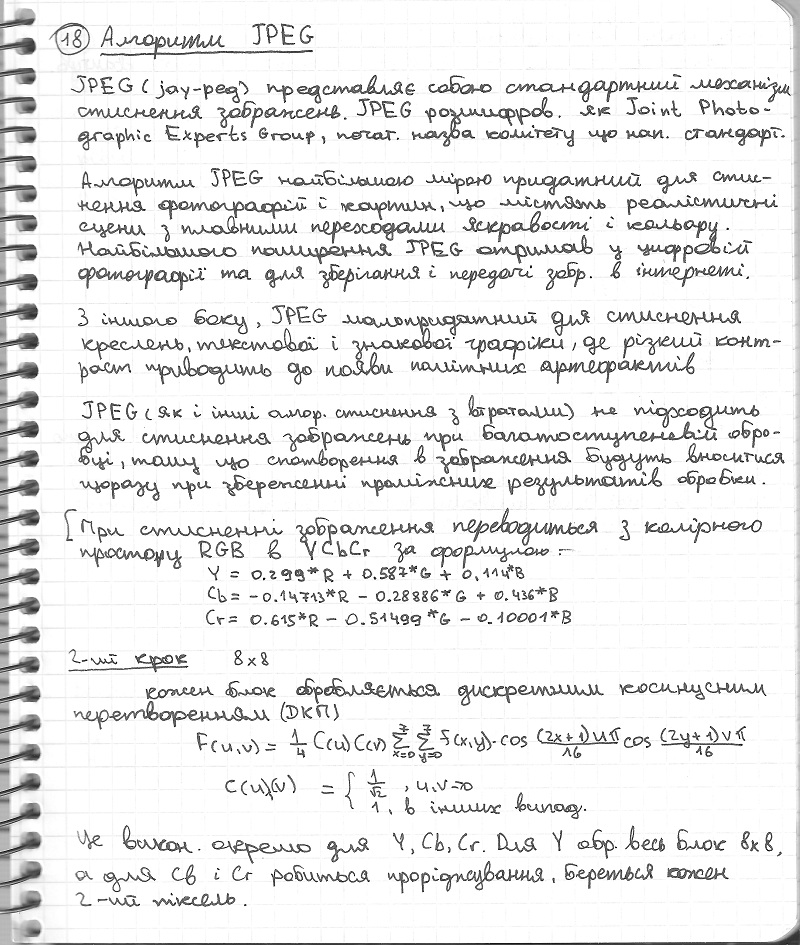 18 Алгоритм JPEG
JPEG (jay-peg) представляє собою стандартний механізм
стиснення зображень. JPEG розшифров. як Joint Photo-
graphic Experts Group, почат. назва комітету що нап. стандарт.
Алгоритм JPEG найбільшою мірою придатний для стис-
нення фотографій і картин, що містять реалістичні
сцени з плавними переходами яскравості і кольору.
Найбільшого поширення JPEG отримав у цифровій
фотографії та для зберігання і передачі зобр. в інтернеті.
З іншого боку, JPEG малопридатний для стиснення
креслень, текстової і знакової графіки, де різкий конт-
раст приводить до появи помітних артефактів
JPEG (як і інші алгор. стиснення з втратами) не підходить
для стиснення зображень при багатоступеневій обро-
бці, тому що спотворення в зображення будуть вноситися
щоразу при збереженні проміжних результатів обробки.
[При стисненні зображення переводиться з колірного
простору RGB в YCbCr за формулою:-
Y = 0.299*R + 0.587*G + 0.114*B
Cb = -0.14713*R - 0.28886*G + 0.436*B
Cr = 0.615*R - 0.51499*G - 0.10001*B
2-ий крок 8x8
кожен блок обробляється дискретним косинусним
перетворенням (ДКП)
F(u,v) = 1/4 C(u) C(v) ∑x=0^7 ∑y=0^7 f(x,y)·cos (2x+1)uπ/16 cos (2y+1)vπ/16
C(u),(v) = { 1/√2 , u,v=0
1, в інших випад.
Це викон. окремо для Y, Cb, Cr. Для Y обр. весь блок 8x8,
а для Cb і Cr робиться проріджування, береться кожен
2-ий піксель.